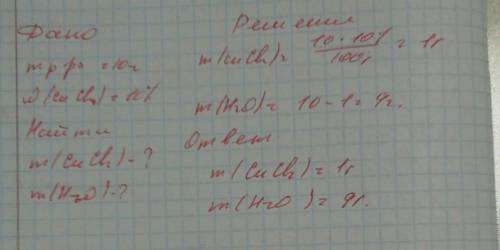 Дано
m р-ра = 10г
ω(CuCl₂) = 10%
Найти
m(CuCl₂) - ?
m(H₂O) - ?
Решение
m(CuCl₂) = 10 · 10% / 100% = 1г
m(H₂O) = 10 - 1 = 9г.
Ответ
m(CuCl₂) = 1г
m(H₂O) = 9г.